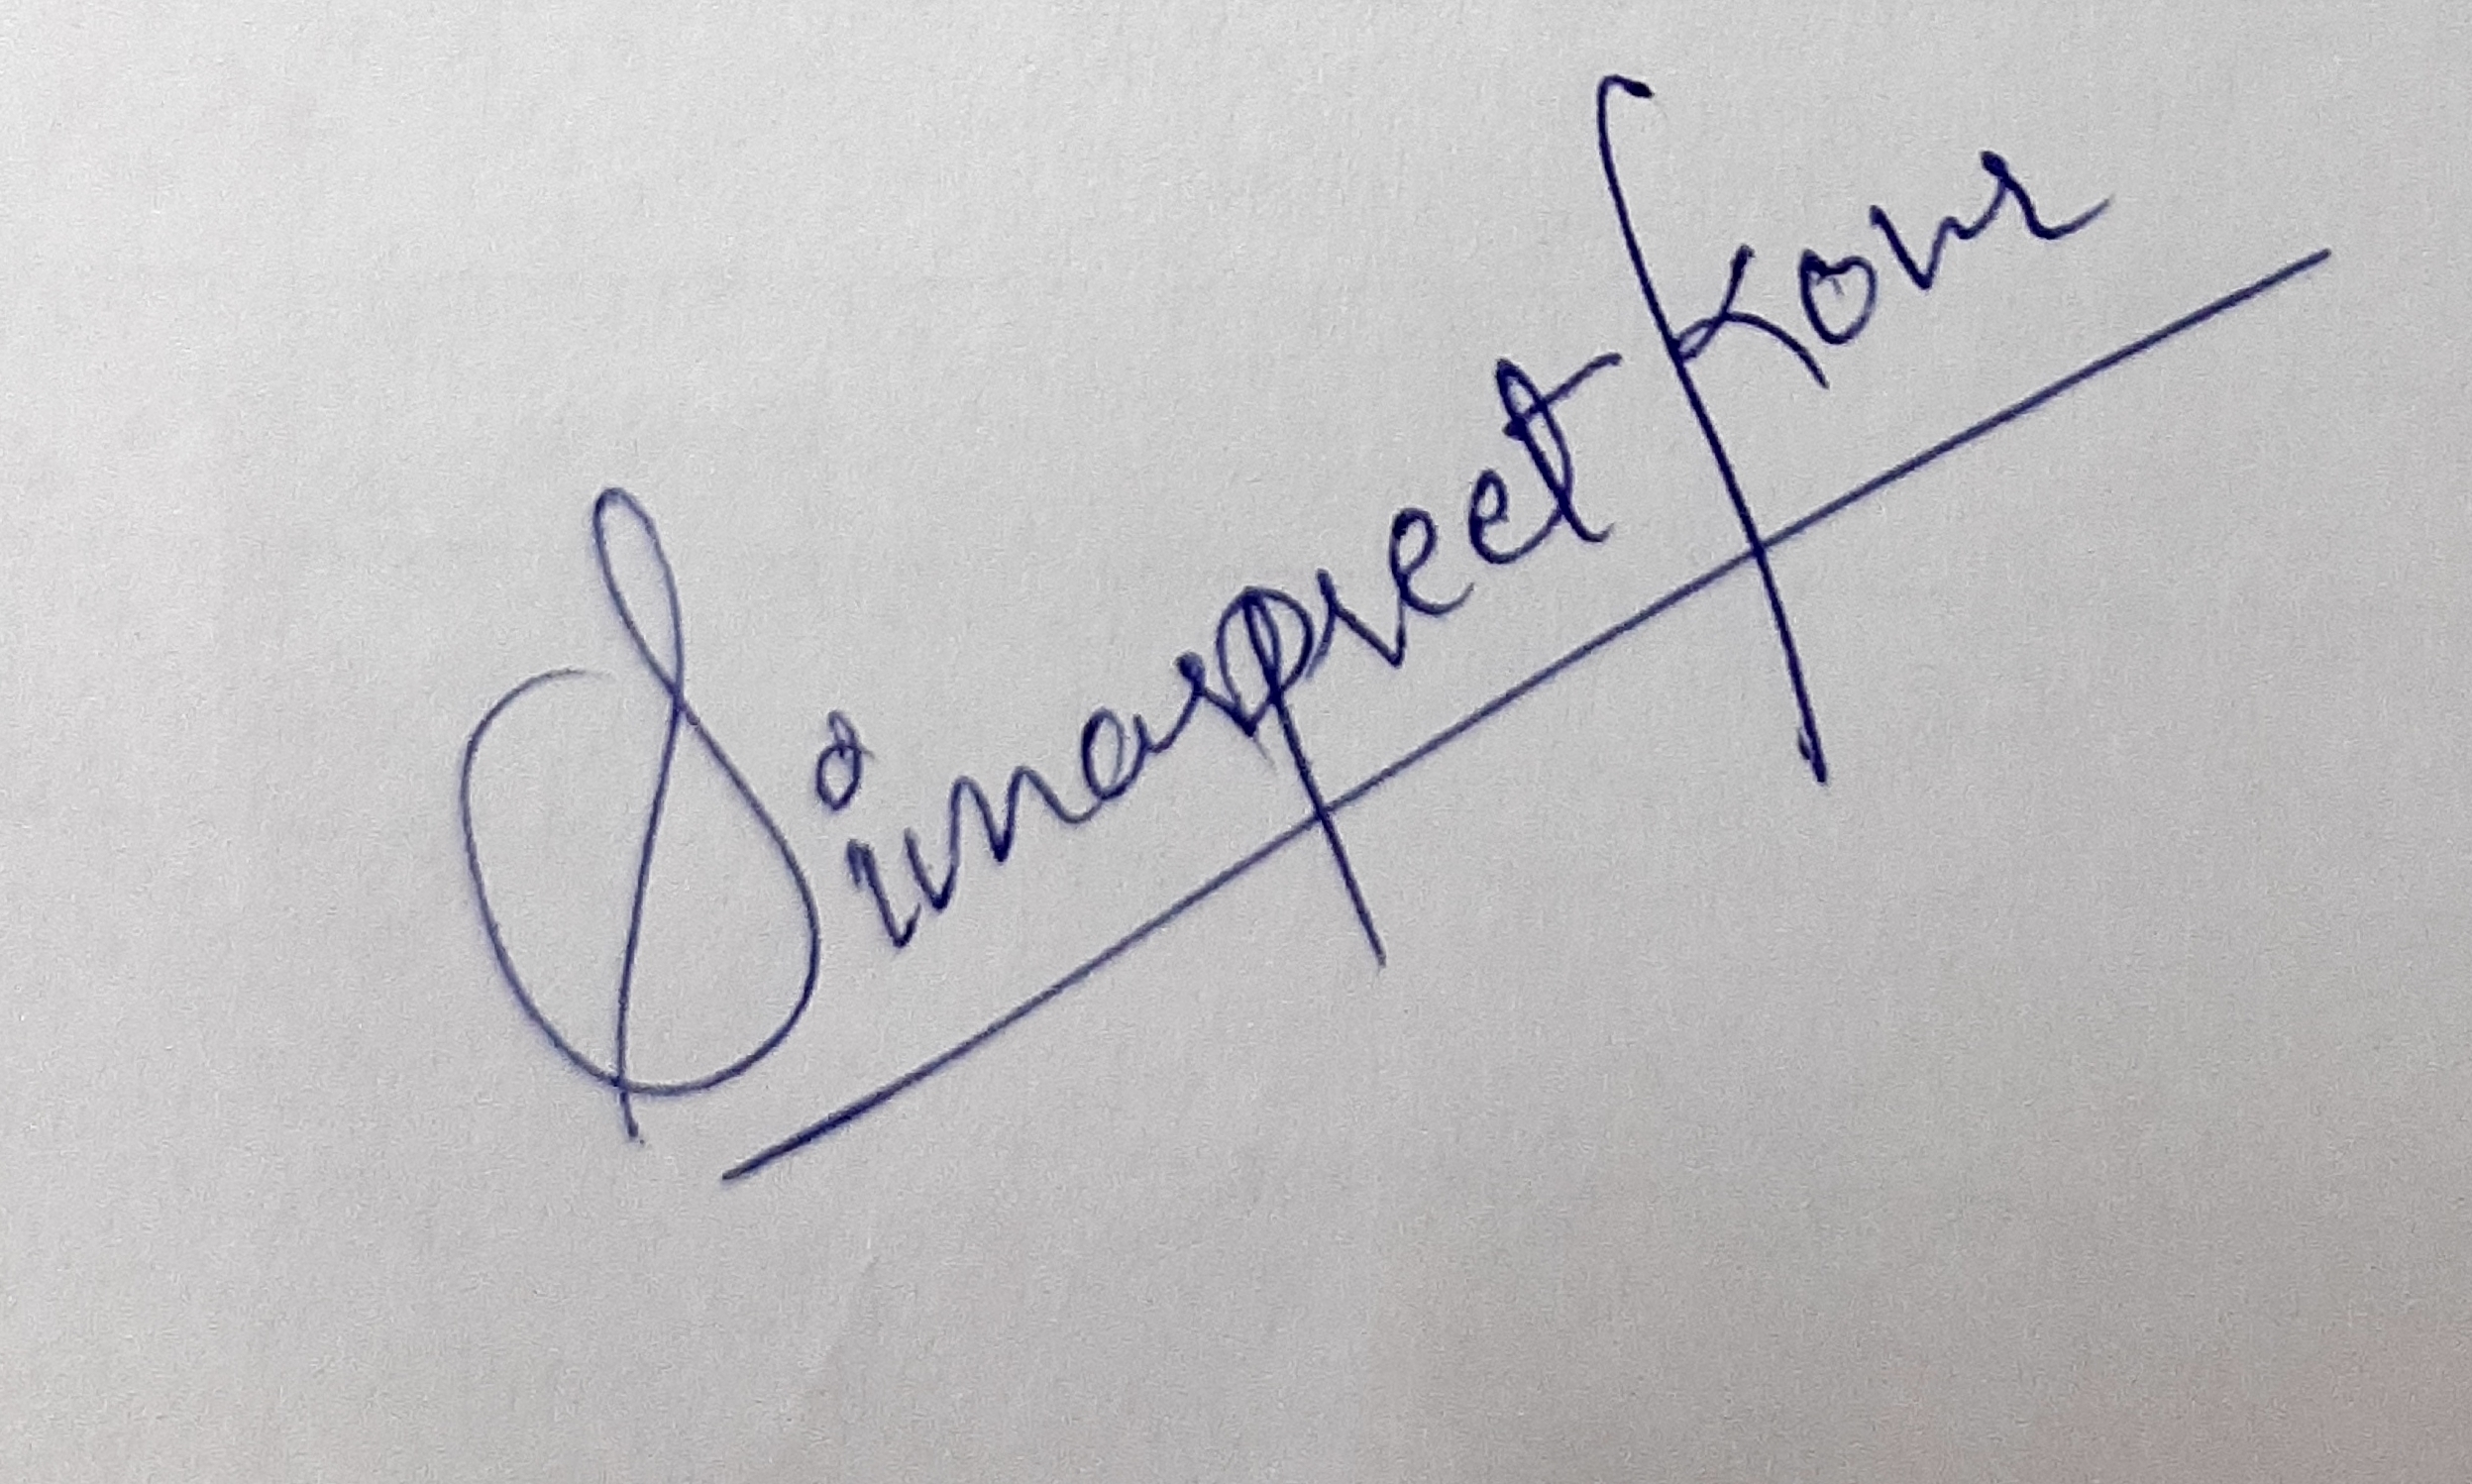 Simarpreet Kour